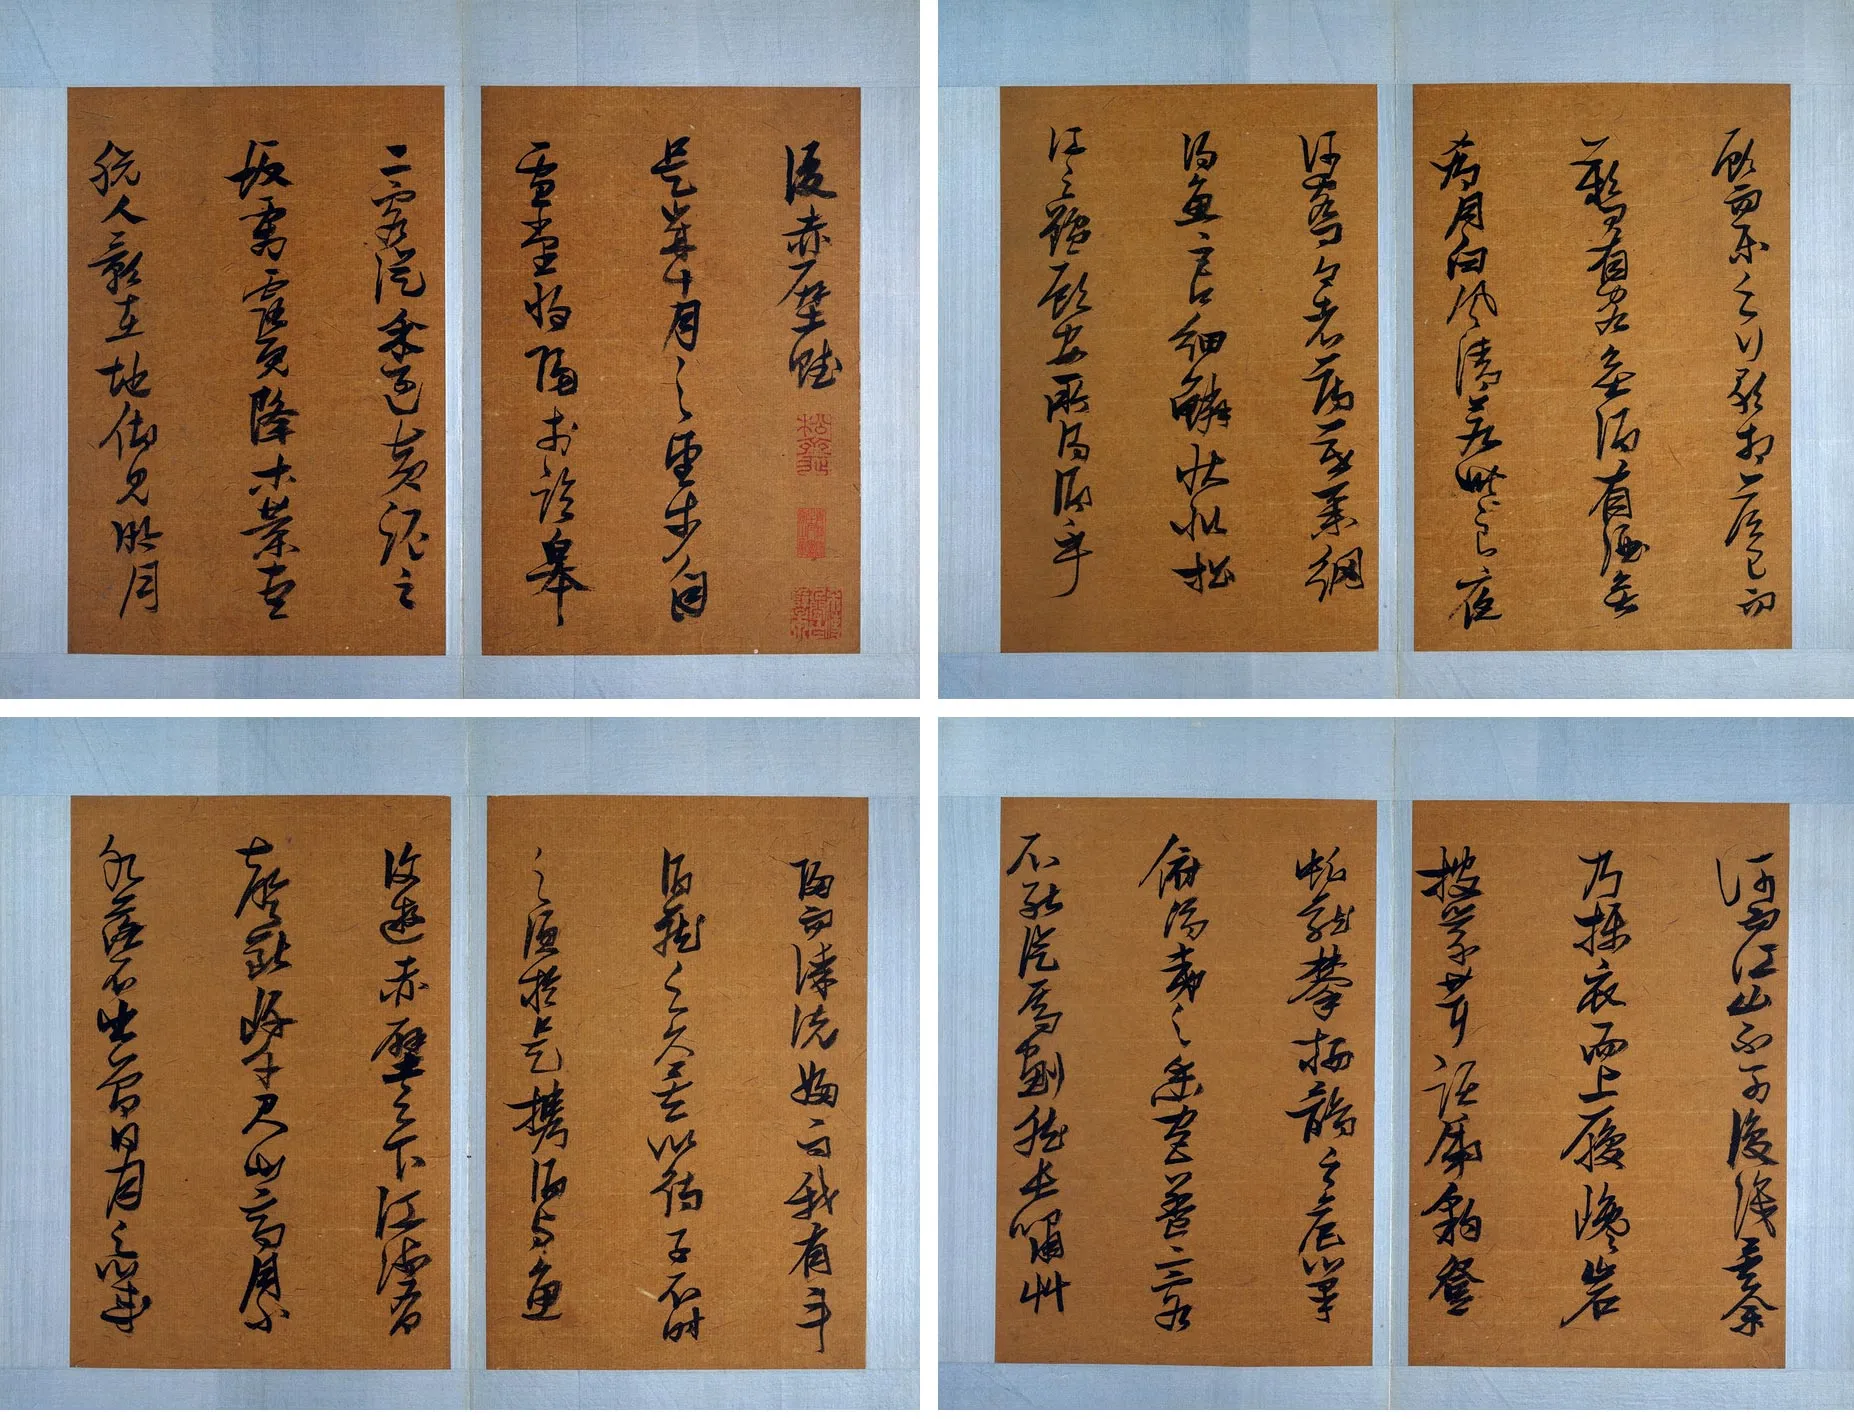 後赤壁賦
是歲十月之望步自
雪堂將歸於臨皋
二客從余過黃泥之
坂霜露既降木葉盡
脫人影在地仰見明月
顧而樂之行歌相答已而
歎曰有客無酒有酒無
肴月白風清若此良夜
何客曰今者薄暮舉網
得魚巨口細鱗狀似松
江之鱸顧安所得酒乎
歸而謀諸婦曰我有斗
酒藏之久矣以待子不時
之須於是攜酒與魚
復遊赤壁之下江流有
聲斷岸千尺山高月小
水落石出曾日月之幾
何而江山不可復識矣余
乃攝衣而上履巉岩
披蒙茸踞虎豹登
虬龍攀栖鶻之危巢
俯馮夷之幽宮蓋二客
不能從焉劃然長嘯艸